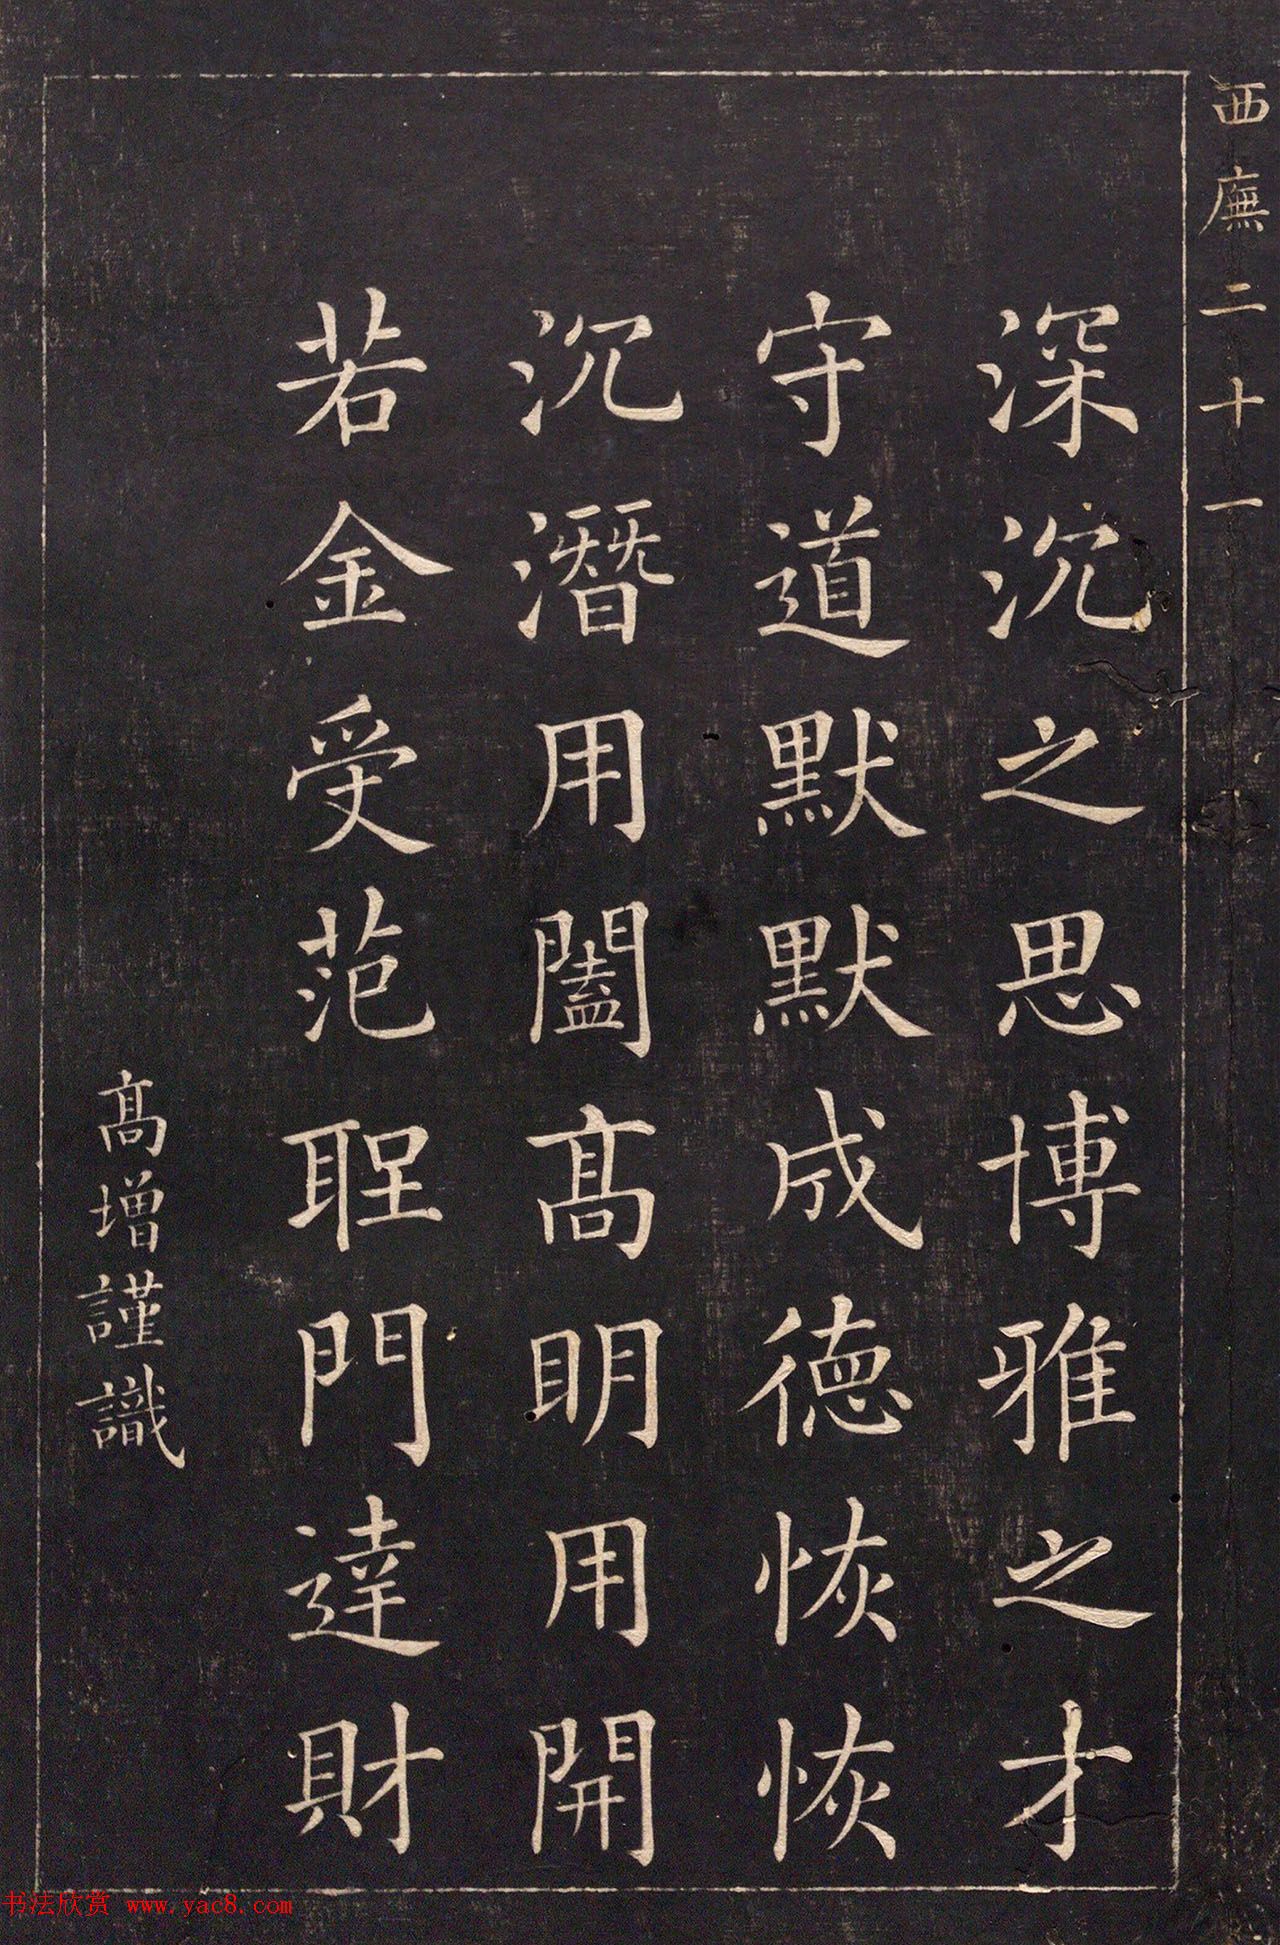 西廡二十一
深沉之思博雅之才
守道默默成德恢恢
沉潛用闔高明用開
若金受范聖門達財
高增謹識
书法欣赏 www.yac8.com